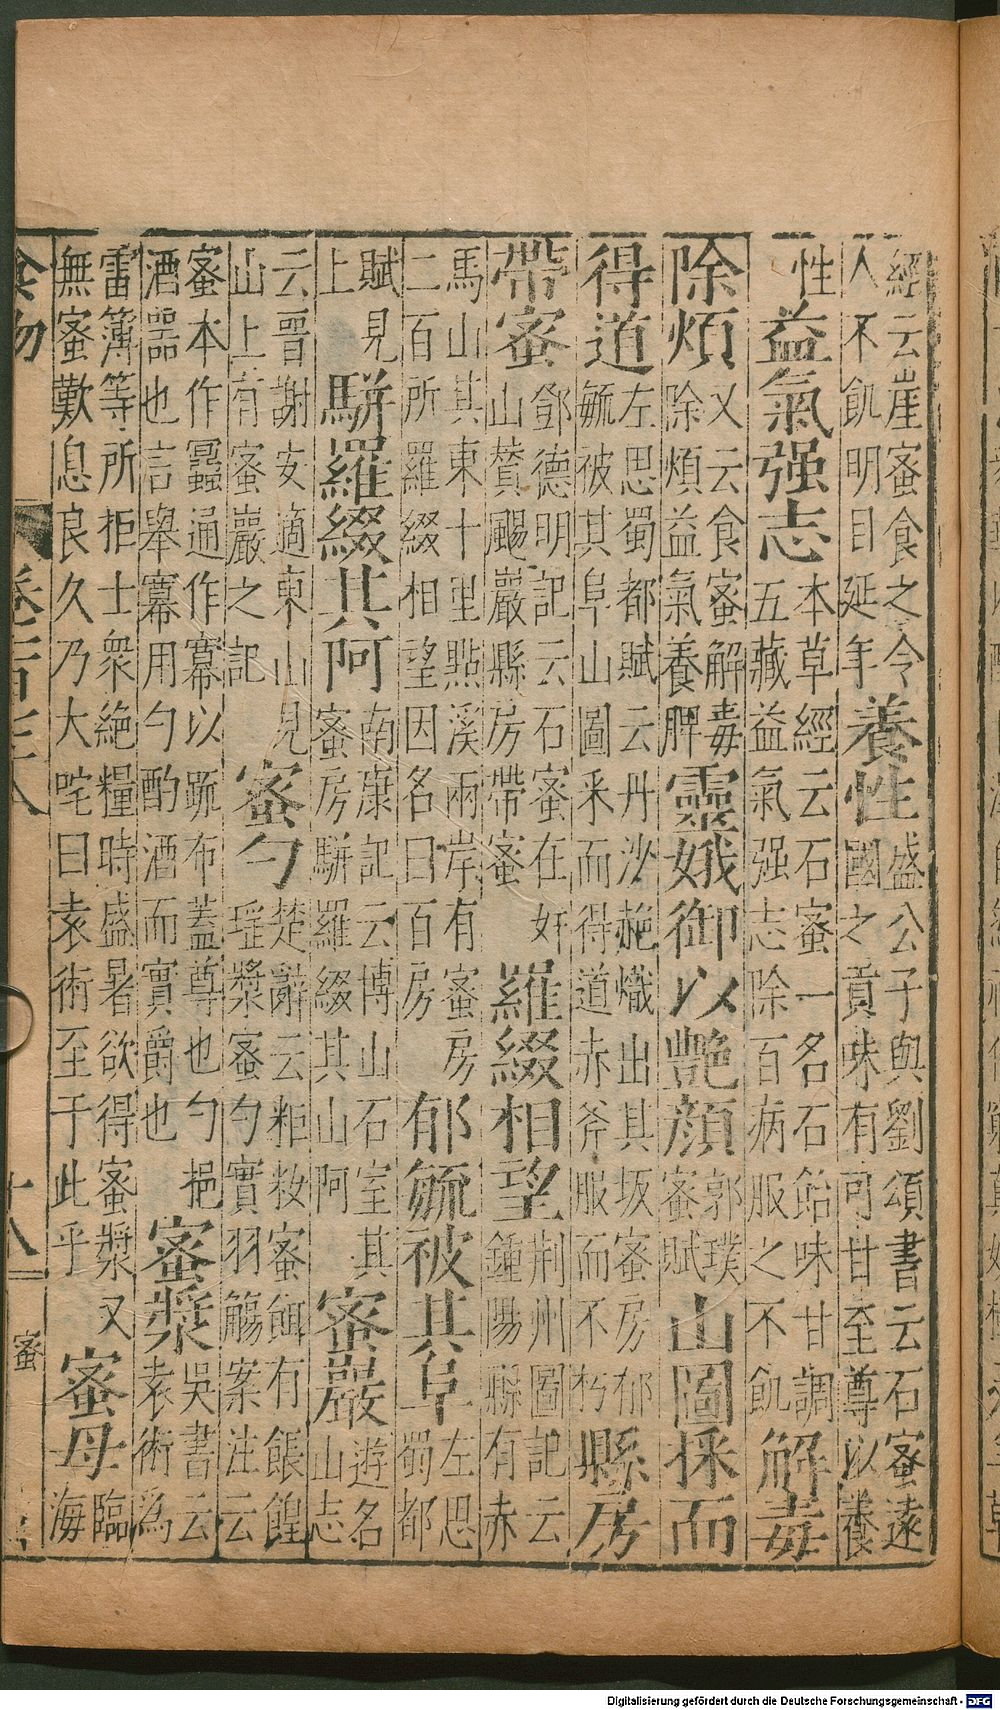 經云崖蜜食之令人不飢明目延年養性盛公子與劉頌書云石蜜遠國之貢味有可甘至尊以養
性益氣强志本草經云石蜜一名石飴味甘調五藏益氣强志除百病服之不飢解毒
除煩又云食蜜解毒除煩益氣養脾靈娥御以艷顔郭璞蜜賦山圖採而
得道左思蜀都賦云丹沙赩熾出其坂蜜房郁毓被其阜山圖釆而得道赤斧服而不朽縣房
帶蜜鄧德明記云石蜜在奸山贊颺巖縣房帶蜜羅綴相望荆州圖記云鍾陽縣有赤
馬山其東十里點溪兩岸有蜜房二百所羅綴相望因名曰百房郁毓被其阜左思蜀都
賦見上駢羅綴其阿南康記云博山石室其蜜房駢羅綴其山阿蜜巖遊名山志
云晋謝安適東山見山上有蜜巖之記蜜勺楚辭云粔籹蜜餌有餦餭瑶漿蜜勺實羽觴案注云
蜜本作䘁通作冪以䟽布蓋尊也勺挹酒噐也言舉冪用勺酌酒而實爵也蜜漿吳書云袁術為
雷簿等所拒士衆絶糧時盛暑欲得蜜漿又無蜜歎息良久乃大咤曰袁術至于此乎蜜母臨海
食物 十八 蜜
Digitalisierung gefördert durch die Deutsche Forschungsgemeinschaft - DFG